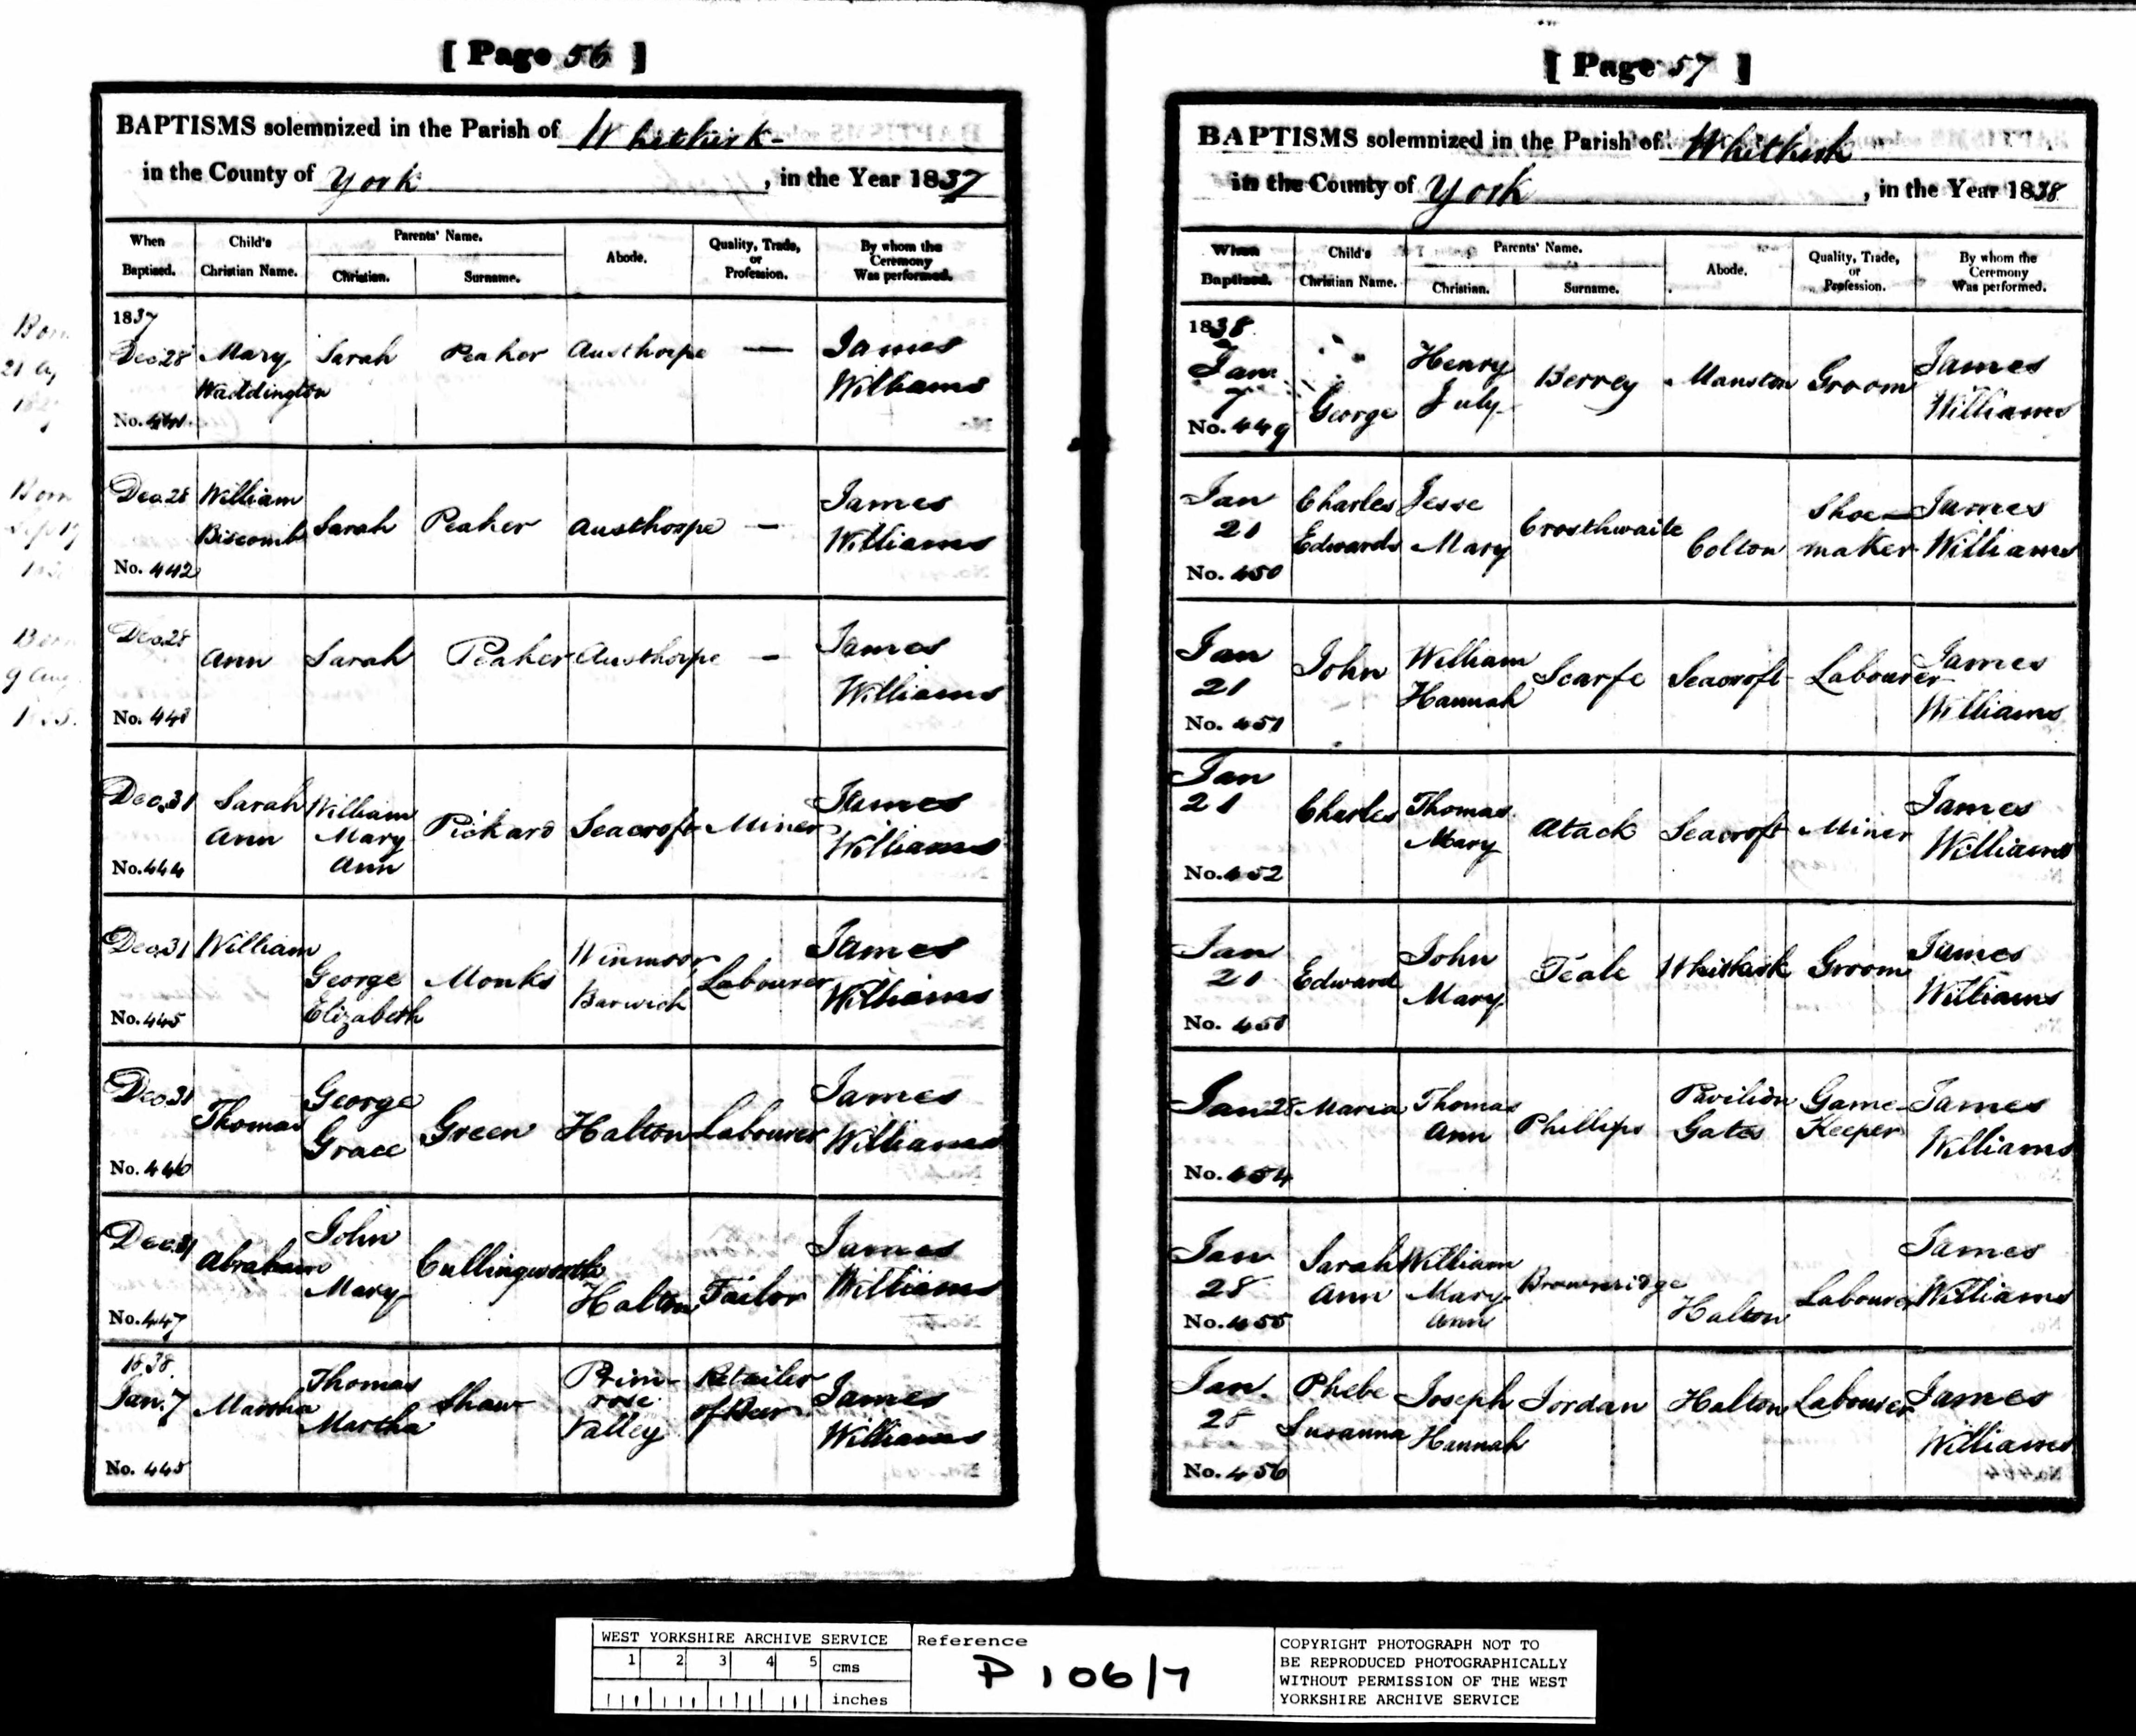 [ Page 56 ]
BAPTISMS solemnized in the Parish of Whitkirk
in the County of York, in the Year 1837
When Baptized.
Child's Christian Name.
Parents' Name.
Christian.
Surname.
Abode.
Quality, Trade, or Profession.
By whom the Ceremony Was performed.
Born
1837
Dec 28
No. 441
Mary
Waddington
Sarah
Peaker
Austhorpe
—
James
Williams
Born
Dec. 28
No. 442
William
Biscomb
Sarah
Peaker
Austhorpe
—
James
Williams
Born
9 Aug
Dec. 28
No. 443
Ann
Sarah
Peaker
Austhorpe
—
James
Williams
Dec. 31
No. 444
Sarah
Ann
William
Mary
Ann
Pickard
Seacroft
Miner
James
Williams
Dec. 31
No. 445
William
George
Elizabeth
Monks
Winmoor
Barwick
Labourer
James
Williams
Dec. 31
No. 446
Thomas
George
Grace
Green
Halton
Labourer
James
Williams
Dec. 31
No. 447
Abraham
John
Mary
Cullingworth
Halton
Tailor
James
Williams
1838.
Jan. 7
No. 448
Martha
Thomas
Martha
Shaw
Prim-
rose
Valley
Retailer
of Beer
James
Williams
[ Page 57 ]
BAPTISMS solemnized in the Parish of Whitkirk
in the County of York, in the Year 1838
When Baptized.
Child's Christian Name.
Parents' Name.
Christian.
Surname.
Abode.
Quality, Trade, or Profession.
By whom the Ceremony Was performed.
1838.
Jan
7
No. 449
George
Henry
July
Berrey
Manston
Groom
James
Williams
Jan
21
No. 450
Charles
Edwards
Jesse
Mary
Crosthwaite
Colton
Shoe-
maker
James
Williams
Jan
21
No. 451
John
William
Hannah
Scarfe
Seacroft
Labourer
James
Williams
Jan
21
No. 452
Charles
Thomas
Mary
Atack
Seacroft
Miner
James
Williams
Jan
21
No. 453
Edward
John
Mary
Teale
Whitkirk
Groom
James
Williams
Jan 28
No. 454
Maria
Thomas
Ann
Phillips
Pavilion
Gates
Game-
Keeper
James
Williams
Jan
28
No. 455
Sarah
Ann
William
Mary
Ann
Brownridge
Halton
Labourer
James
Williams
Jan.
28
No. 456
Phebe
Susanna
Joseph
Hannah
Jordan
Halton
Labourer
James
Williams
WEST YORKSHIRE ARCHIVE SERVICE
1 2 3 4 5 cms
inches
Reference
P 106/7
COPYRIGHT PHOTOGRAPH NOT TO
BE REPRODUCED PHOTOGRAPHICALLY
WITHOUT PERMISSION OF THE WEST
YORKSHIRE ARCHIVE SERVICE